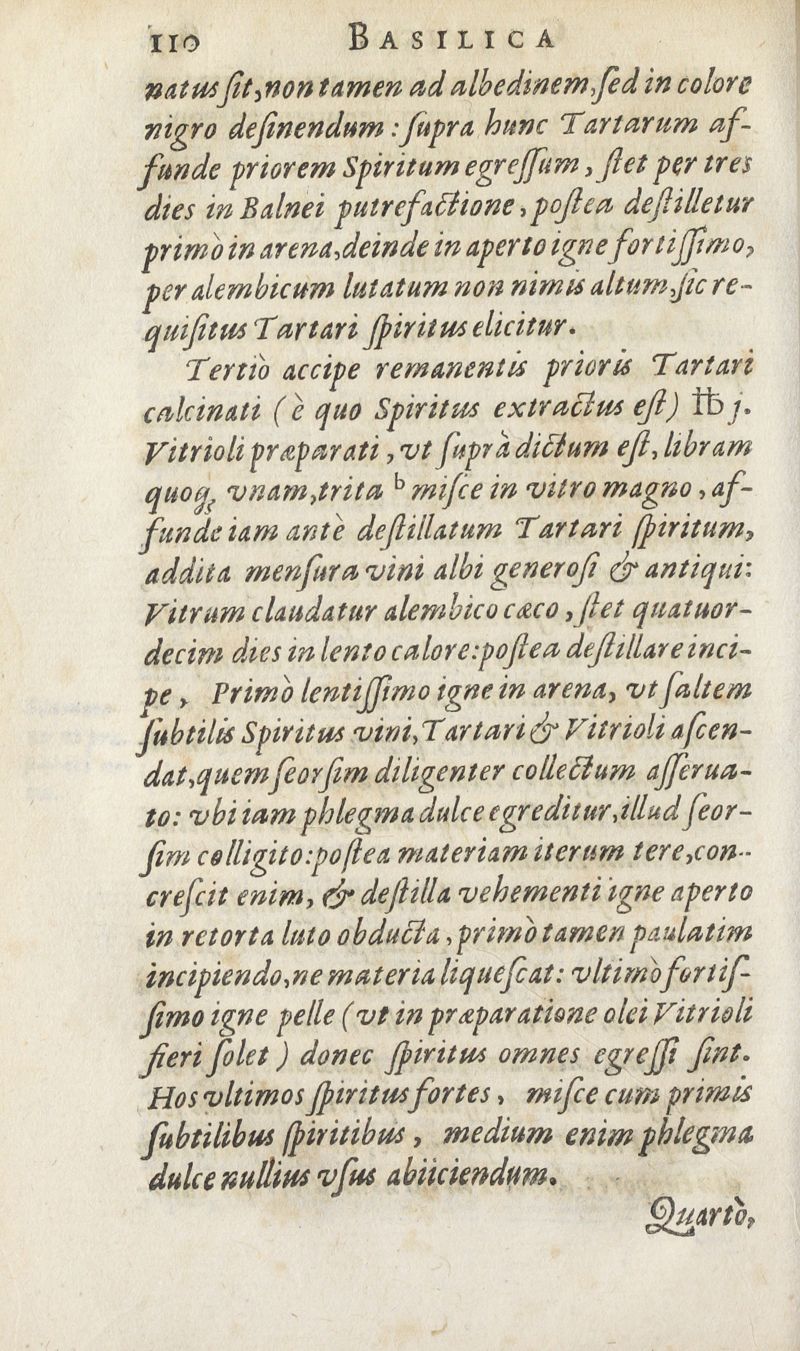 110 BASILICA
natus ſit, non tamen ad albedinem, ſed in colore
nigro deſinendum : ſupra hunc Tartarum af-
funde priorem Spiritum egreſſum, ſtet per tres
dies in Balnei putrefactione, poſtea deſtilletur
primò in arena, deinde in aperto igne fortiſſimo,
per alembicum lutatum non nimis altum, ſic re-
quiſitus Tartari ſpiritus elicitur.
Tertiò accipe remanentis prioris Tartari
calcinati (è quo Spiritus extractus eſt) ℔ j.
Vitrioli præparati, vt ſuprà dictum eſt, libram
quoq; vnam, trita ᵇ miſce in vitro magno, af-
funde iam antè deſtillatum Tartari ſpiritum,
addita menſura vini albi generoſi & antiqui:
Vitrum claudatur alembico cæco, ſtet quatuor-
decim dies in lento calore: poſtea deſtillare inci-
pe, Primò lentiſſimo igne in arena, vt ſaltem
ſubtilis Spiritus vini, Tartari & Vitrioli aſcen-
dat, quem ſeorſim diligenter collectum aſſerua-
to: vbi iam phlegma dulce egreditur, illud ſeor-
ſim colligito: poſtea materiam iterum tere, con-
creſcit enim, & deſtilla vehementi igne aperto
in retorta luto obducta, primò tamen paulatim
incipiendo, ne materia liqueſcat: vltimò fortiſ-
ſimo igne pelle (vt in præparatione olei Vitrioli
fieri ſolet) donec ſpiritus omnes egreſſi ſint.
Hos vltimos ſpiritus fortes, miſce cum primis
ſubtilibus ſpiritibus, medium enim phlegma
dulce nullius vſus abiiciendum.
Quartò,